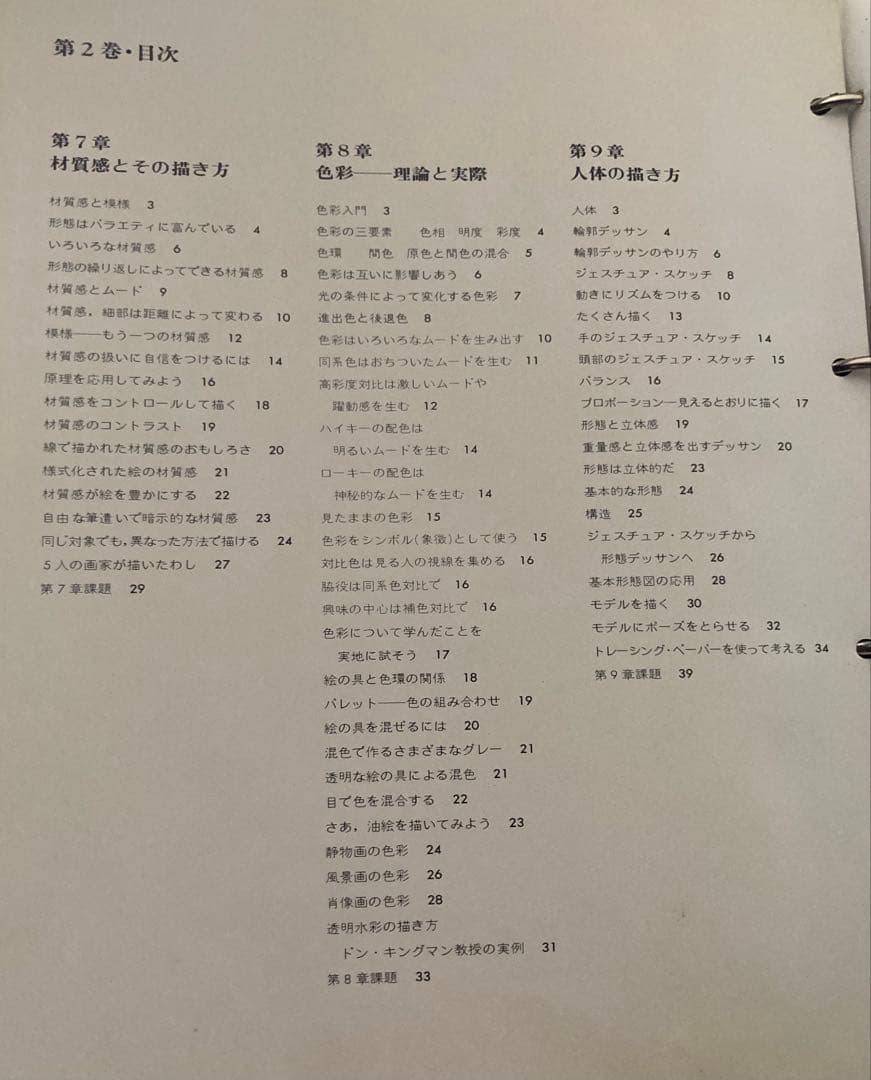 第2巻・目次
第7章
材質感とその描き方
材質感と模様 3
形態はバラエティに富んでいる 4
いろいろな材質感 6
形態の繰り返しによってできる材質感 8
材質感とムード 9
材質感，細部は距離によって変わる 10
模様——もう一つの材質感 12
材質感の扱いに自信をつけるには 14
原理を応用してみよう 16
材質感をコントロールして描く 18
材質感のコントラスト 19
線で描かれた材質感のおもしろさ 20
様式化された絵の材質感 21
材質感が絵を豊かにする 22
自由な筆遣いで暗示的な材質感 23
同じ対象でも，異なった方法で描ける 24
5人の画家が描いたわし 27
第7章課題 29
第8章
色彩——理論と実際
色彩入門 3
色彩の三要素 色相 明度 彩度 4
色環 間色 原色と間色の混合 5
色彩は互いに影響しあう 6
光の条件によって変化する色彩 7
進出色と後退色 8
色彩はいろいろなムードを生み出す 10
同系色はおちついたムードを生む 11
高彩度対比は激しいムードや
躍動感を生む 12
ハイキーの配色は
明るいムードを生む 14
ローキーの配色は
神秘的なムードを生む 14
見たままの色彩 15
色彩をシンボル(象徴)として使う 15
対比色は見る人の視線を集める 16
脇役は同系色対比で 16
興味の中心は補色対比で 16
色彩について学んだことを
実地に試そう 17
絵の具と色環の関係 18
パレット——色の組み合わせ 19
絵の具を混ぜるには 20
混色で作るさまざまなグレー 21
透明な絵の具による混色 21
目で色を混合する 22
さあ，油絵を描いてみよう 23
静物画の色彩 24
風景画の色彩 26
肖像画の色彩 28
透明水彩の描き方
ドン・キングマン教授の実例 31
第8章課題 33
第9章
人体の描き方
人体 3
輪郭デッサン 4
輪郭デッサンのやり方 6
ジェスチュア・スケッチ 8
動きにリズムをつける 10
たくさん描く 13
手のジェスチュア・スケッチ 14
頭部のジェスチュア・スケッチ 15
バランス 16
プロポーション—見えるとおりに描く 17
形態と立体感 19
重量感と立体感を出すデッサン 20
形態は立体的だ 23
基本的な形態 24
構造 25
ジェスチュア・スケッチから
形態デッサンへ 26
基本形態図の応用 28
モデルを描く 30
モデルにポーズをとらせる 32
トレーシング・ペーパーを使って考える 34
第9章課題 39